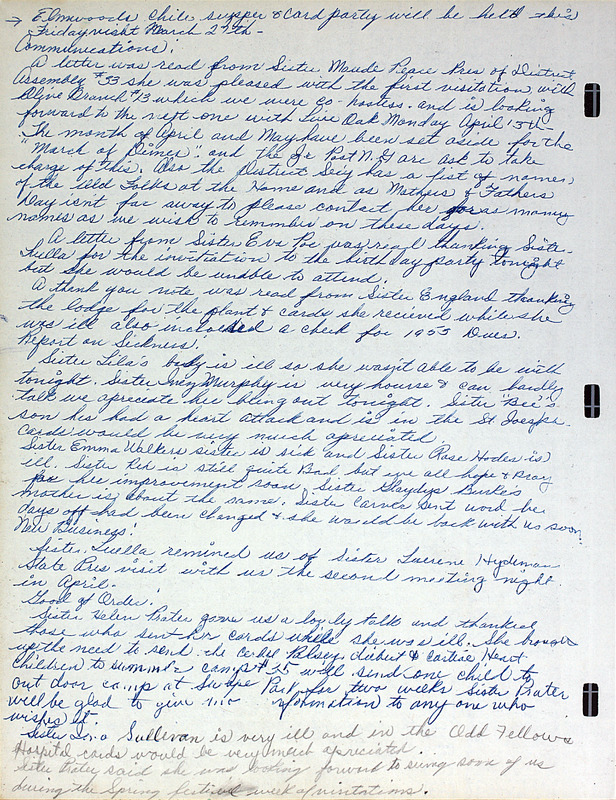 → Elmwoods Chile supper & Card party will be held this
Friday night March 27th -
Communications:
A letter was read from Sister Maude Peace Pres of District
Assembly #33 she was pleased with the first visitation with
Olive Branch #13 which we were co-hostess. and is looking
forward to the next one with Live Oak Monday April 13th -
The month of April and May have been set aside for the
"March of Dimes". and the Jr Past N.G are ask to take
charge of this. Also the District Secy has a list of names
of the Old Folks at the Home and as Mothers & Fathers
Day isnt far away to please contact her for as many
names as we wish to remember on these days.
A letter from Sister Eva Poe was read thanking Sister
Luella for the invitation to the birthday party tonight
but she would be unable to attend.
A thank you note was read from Sister England thanking
the lodge for the plant & cards she recieved while she
was ill also inclosed a check for 1953 Dues.
Report on Sickness:
Sister Lila's body is ill so she wasnt able to be with
tonight. Sister Inez Murphy is very hourse & can hardly
talk we apreciate her being out tonight. Sister Bee's
son has had a heart attack and is in the St
Cards would be very much apreciated.
Sister Emma Walkers sister is sick and Sister Rose is
ill. Sister is still quite Bad but we all hope & pray
for her improvement soon. Sister Gladys Burke's
mother is about the same. Sister Carver sent word her
days off had been changed & she would be back with us soon.
New Business:
Sister Luella remined us of Sister Lucrene Hydeman
State Pres visit with us the second meeting night
in April.
Good of Order:
Sister Helen Prater gave us a lovely talk and thanked
those who sent her cards while she was ill. She brought
up the need to send the Cerbel Palsey, diabet & Cartiac Heart
Children to summer camp #25 will send one child to
out door camp at Swope Park for two weeks Sister Prater
will be glad to give any to any one who
wishes it.
Sister Sullivan is very ill and in the Odd Fellows
Hospital cards would be very much apreciated.
Sister Prater said she was looking forward to seeing soon of us
during the Spring festival week of visitations.